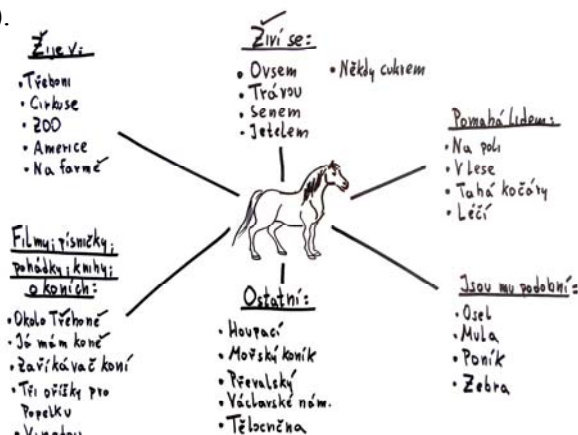 ).
Žije v:
• Třeboni
• Cirkuse
• ZOO
• Americe
• Na farmě
Živí se:
• Ovsem
• Trávou
• Senem
• Jetelem
• Někdy cukrem
Pomahá lidem:
• Na poli
• V lese
• Tahá kočáry
• Léčí
Filmy, písničky,
pohádky, knihy,
o koních:
• Okolo Třeboně
• Já mám koně
• Zaříkávač koní
• Tři oříšky pro
Popelku
Ostatní:
• Houpací
• Mořský koník
• Převalský
• Václavské nám.
• Tělocvična
Jsou mu podobní:
• Osel
• Mula
• Poník
• Zebra